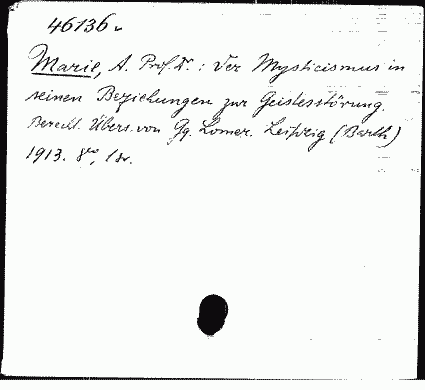 46136
Marie, A. Prof. Dr.: Der Mysticismus in
seinen Beziehungen zur Geistesstörung.
Berecht. Übers. von Gg. Lomer. Leipzig (Barth)
1913. 8vo, 1